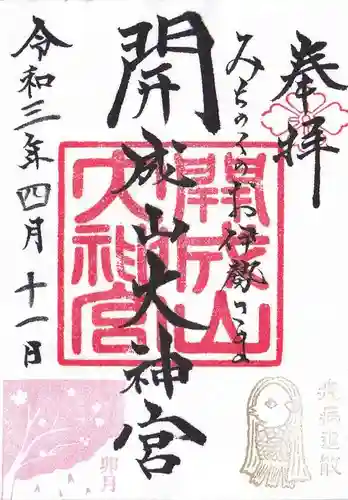 奉拝
みちのくのお伊勢さま
開成山大神宮
開成山
大神宮
令和三年四月十一日
疫病退散
卯月